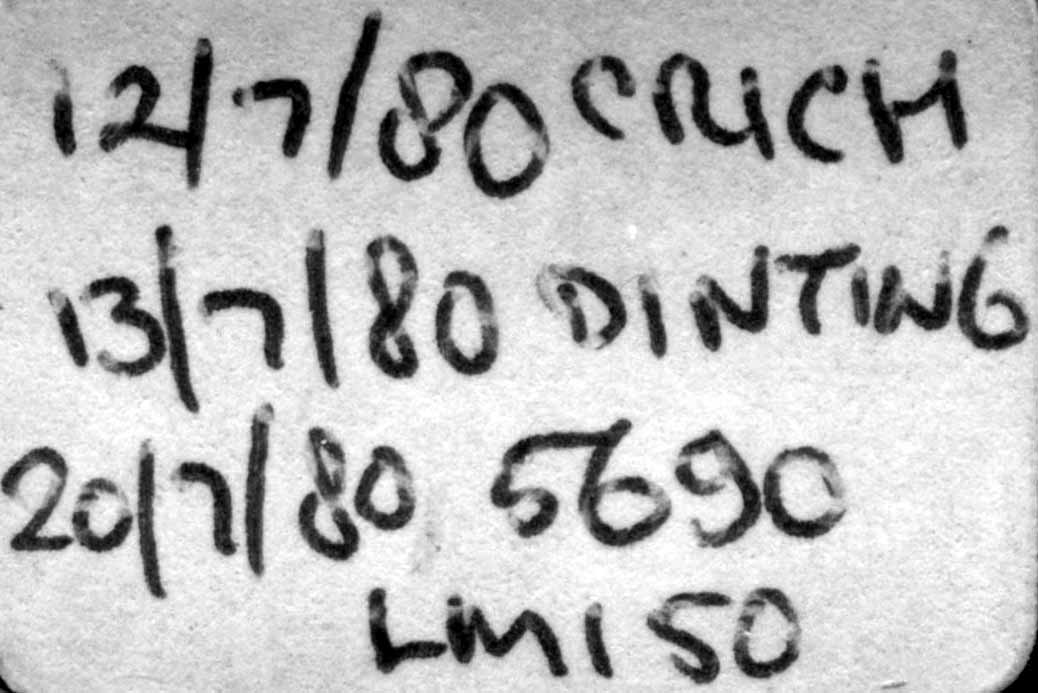 12/7/80 CRICH
13/7/80 DINTING
20/7/80 5690
LM150